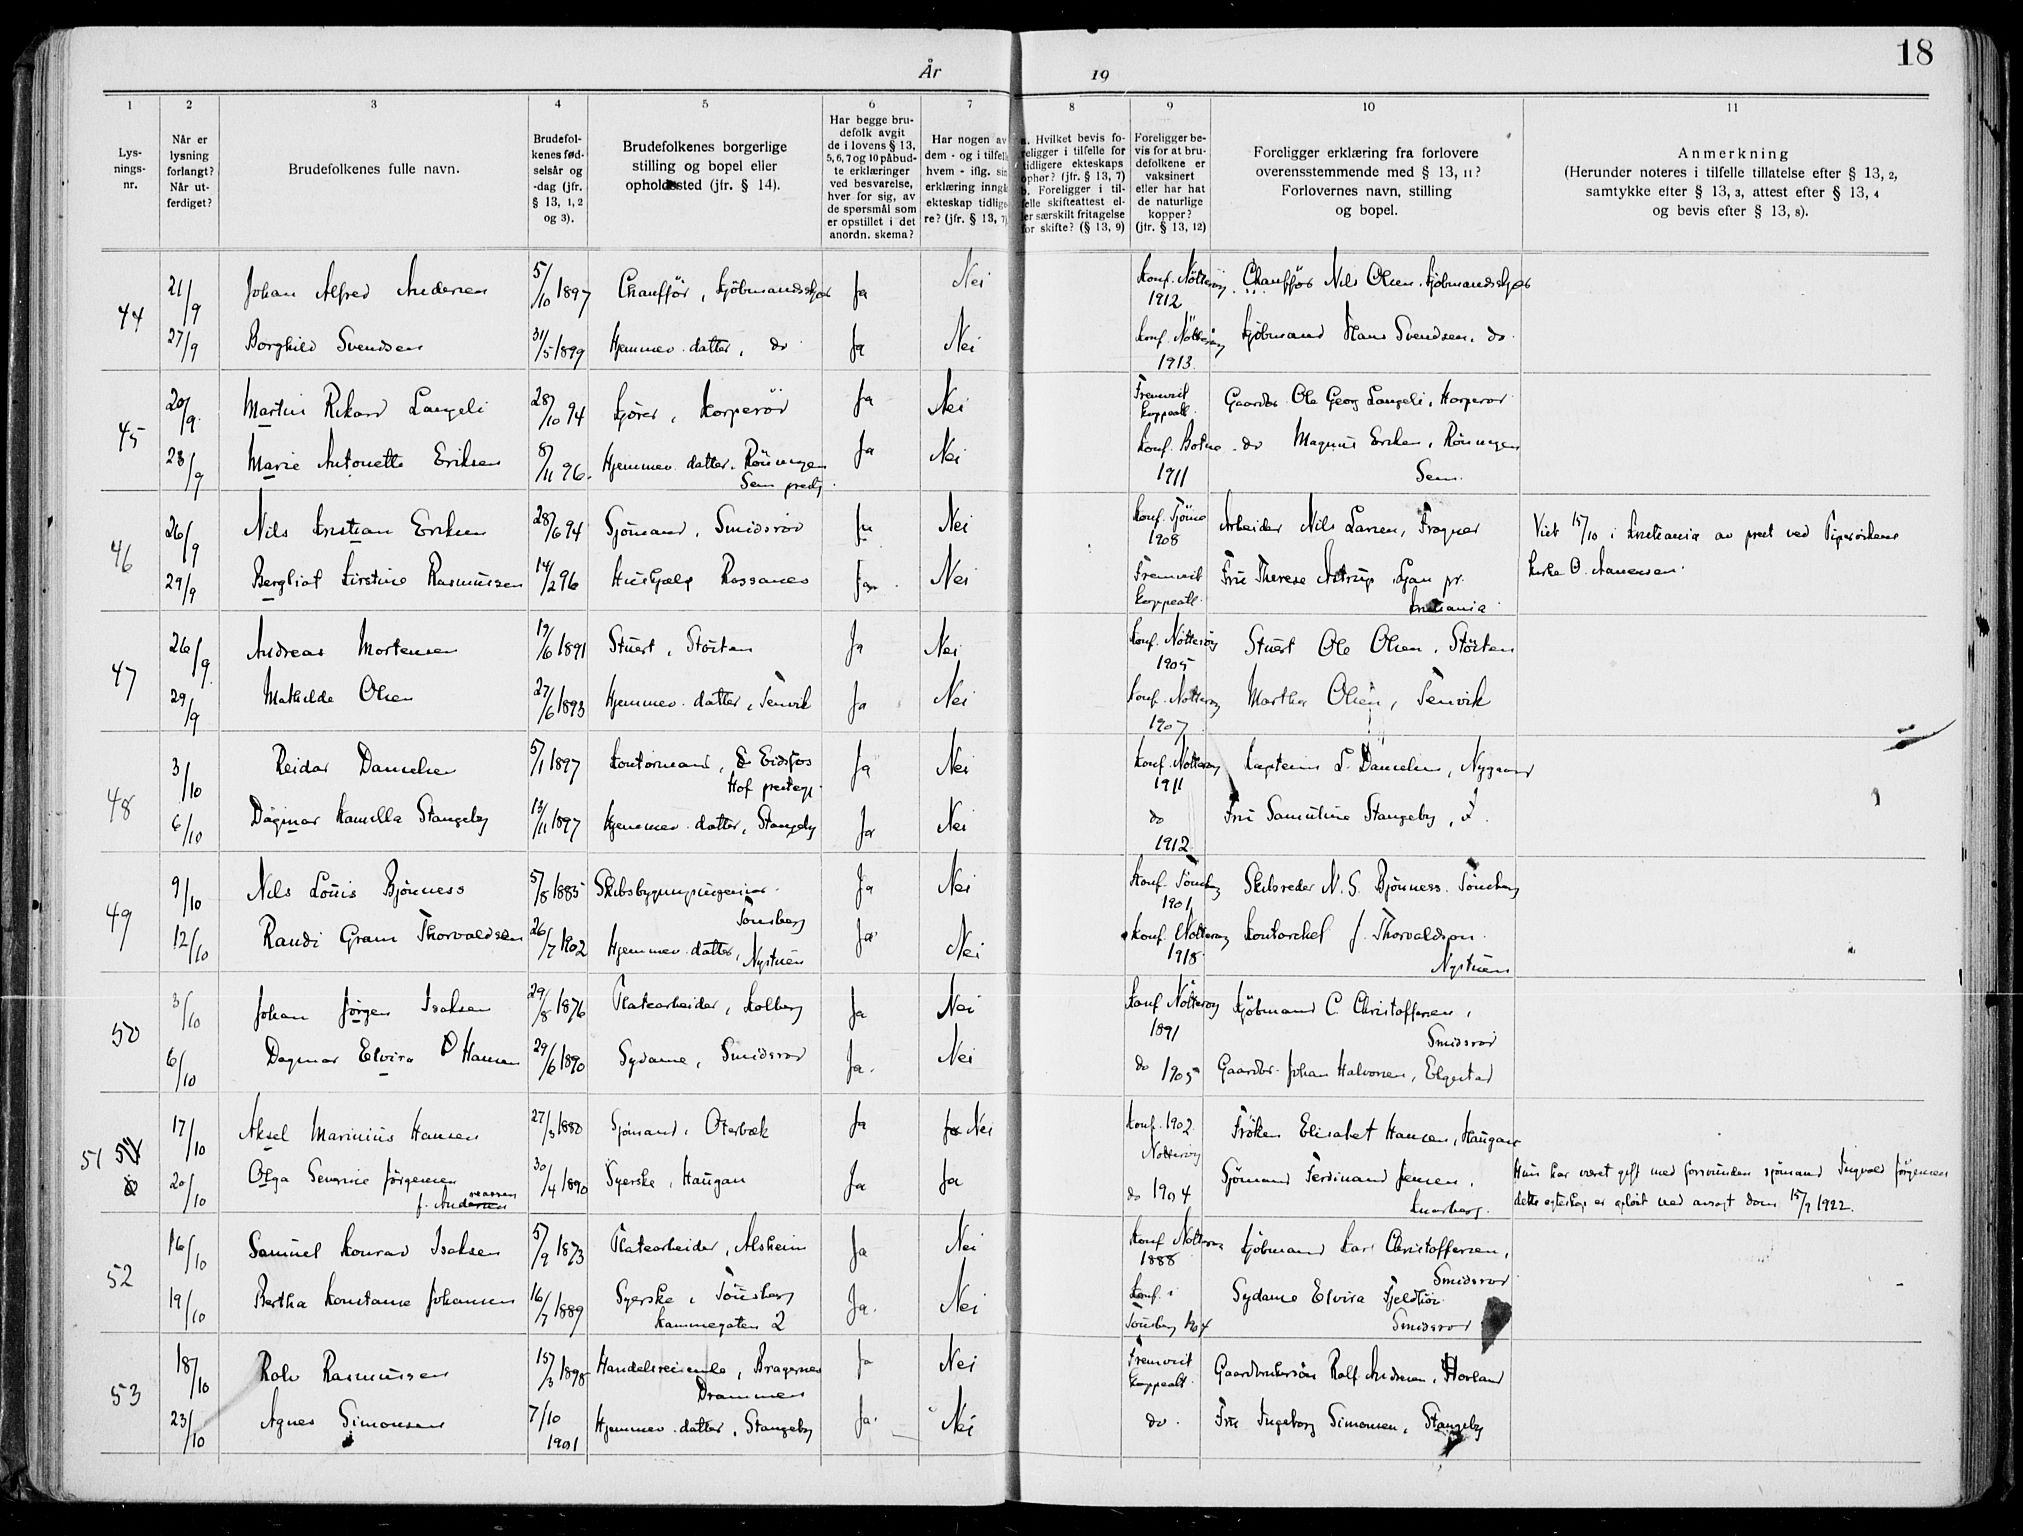 18
År 19
1 2 3 4 5 6 7 8 9 10 11
Lys-
nings-
nr.
Når er
lysning
forlangt?
Når ut-
ferdiget?
Brudefolkenes fulle navn.
Brudefol-
kenes fød-
selsår og
-dag (jfr.
§ 13, 1, 2
og 3).
Brudefolkenes borgerlige
stilling og bopel eller
opholdssted (jfr. § 14).
Har begge bru-
defolk avgit
de i lovens § 13,
5, 6, 7 og 10 påbud-
te erklæringer
ved besvarelse,
hver for sig, av
de spørsmål som
er opstillet i det
anordn. skema?
Har nogen av
dem - og i tilfelle
hvem - iflg. sin
erklæring inngå
ekteskap tidlige-
re? (jfr. § 13, 7)
a. Hvilket bevis fo-
religger i tilfelle for
tidligere ekteskaps
ophør? (jfr. § 13, 7)
b. Foreligger i til-
felle skifteattest el-
ler særskilt fritagelse
for skifte? (§ 13, 9)
Foreligger be-
vis for at bru-
defolkene er
vaksinert
eller har hat
de naturlige
kopper?
(jfr. § 13, 12)
Foreligger erklæring fra forlovere
overensstemmende med § 13, 11?
Forlovernes navn, stilling
og bopel.
Anmerkning
(Herunder noteres i tilfelle tillatelse efter § 13, 2,
samtykke efter § 13, 3, attest efter § 13, 4
og bevis efter § 13, 8).
44 21/9 Johan Alfred Andersen 5/10 1897 Chauffør, Kjøbmandsskjær Ja Nei Konf. Nøtterøy 1912 Chauffør Nils Olsen, Kjøbmandsskjær
27/9 Borghild Svendsen 31/5 1899 Hjemmev. datter, do Ja Nei Konf. Nøtterøy 1913 Kjøbmand Hans Svendsen, do
45 20/9 Martin Rikard Langeli 28/10 94 Kjører, Horperød Ja Nei Fremvist koppeatt. Gaardbr. Ole Georg Langeli, Horperød
28/9 Marie Antonette Eriksen 8/11 96. Hjemmev. datter, Røningen Sem prestg. Ja Nei Konf. Botne 1911 do Magnus Eriksen, Røningen Sem.
46 26/9 Nils Kristian Eriksen 28/6 94 Sjømand, Smidsrød Ja Nei Konf. Tjømø 1908 Arbeider Nils Larsen, Fragner Viet 15/10 i Kristiania av prest ved Piperviken
29/9 Bergliot Kirstine Rasmussen 14/2 96 Hushjælp Rossanes Ja Nei Fremvist koppeatt. Fru Therese Astrup, Ljan pr. Kristiania kirke O. Aanensen.
47 26/9 Andreas Mortensen 19/6 1891 Stuert, Storten Ja Nei Konf. Nøtterøy 1905 Stuert Ole Olsen, Storten
29/9 Mathilde Olsen 27/6 1893 Hjemmev. datter, Tenvik Ja Nei Konf. Nøtterøy 1907 Martha Olsen, Tenvik
48 3/10 Reidar Danielsen 5/1 1897 Kontormand, Eidsfos Hof prestegj. Ja Nei Konf. Nøtterøy 1911 Kaptein L. Danielsen, Nygaard
6/10 Dagmar Kamilla Stangeby 13/11 1897 Hjemmev. datter, Stangeby Ja Nei do 1912 Fru Samuline Stangeby,
49 9/10 Nils Louis Bjønness 5/8 1885 Skibsbygningsingeniør Tønsberg Ja Nei Konf. Tønsberg 1901 Skibsreder N. S. Bjønness, Tønsberg
12/10 Randi Gram Thorvaldsen 26/7 1902 Hjemmev. datter, Nystuen Ja Nei Konf. Nøtterøy 1918 Kontorchef J. Thorvaldsen Nystuen
50 3/10 Johan Jørgen Isaksen 29/8 1876 Platearbeider, Kolberg Ja Nei Konf. Nøtterøy 1891 Kjøbmand C. Christoffersen, Smidsrød
6/10 Dagmar Elvira Hansen 29/6 1890 Sydame, Smidsrød Ja Nei do 1905 Gaardbr. Johan Halvorsen, Elgestad
51 17/10 Aksel Marinius Hansen 27/3 1880 Sjømand, Oterbæk Ja Nei Konf. 1902 Nøtterøy Frøken Elisabet Hansen, Haugan
20/10 Olga Severine Jørgensen f. Andreassen 30/4 1890 Syerske, Haugan Ja Ja do 1904 Sjømand Ferdinand Jensen, Knarberg. Hun har været gift med forsvunden sjømand Ingvald Jørgensen
dette egteskap er opløst ved avsagt dom 15/9 1922.
52 16/10 Samuel Konrad Isaksen 5/9 1873 Platearbeider, Alsheim Ja Nei Konf. Nøtterøy 1888 Kjøbmand Karl Christoffersen, Smidsrød
19/10 Bertha Konstanse Johansen 16/7 1889 Syerske, Tønsberg Kammegaten 2 Ja Nei Konf. i Tønsberg 1904 Sydame Elvira Fjeldtun Smidsrød
53 18/10 Rolv Rasmussen 15/3 1898 Handelsreisende, Bragernes Drammen Ja Nei Fremvist koppeatt. Gaardbrukersøn Rolf Andersen, Hovland
23/10 Agnes Simonsen 7/10 1901 Hjemmev. datter, Stangeby Ja Nei do Fru Ingeborg Simonsen, Stangeby